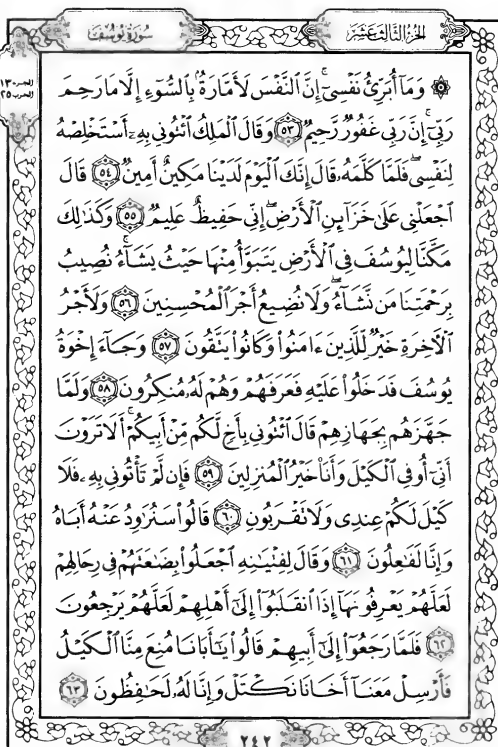 سُورَةُ يُوسُفَ
الجزء الثالث عشر
الجزء ١٣
الحزب ٢٥
۞ وَمَآ أُبَرِّئُ نَفْسِىٓ ۚ إِنَّ ٱلنَّفْسَ لَأَمَّارَةُۢ بِٱلسُّوٓءِ إِلَّا مَا رَحِمَ
رَبِّىٓ ۚ إِنَّ رَبِّى غَفُورٌ رَّحِيمٌ ٥٣ وَقَالَ ٱلْمَلِكُ ٱئْتُونِى بِهِۦٓ أَسْتَخْلِصْهُ
لِنَفْسِى ۖ فَلَمَّا كَلَّمَهُۥ قَالَ إِنَّكَ ٱلْيَوْمَ لَدَيْنَا مَكِينٌ أَمِينٌ ٥٤ قَالَ
ٱجْعَلْنِى عَلَىٰ خَزَآئِنِ ٱلْأَرْضِ ۖ إِنِّى حَفِيظٌ عَلِيمٌ ٥٥ وَكَذَٰلِكَ
مَكَّنَّا لِيُوسُفَ فِى ٱلْأَرْضِ يَتَبَوَّأُ مِنْهَا حَيْثُ يَشَآءُ ۚ نُصِيبُ
بِرَحْمَتِنَا مَن نَّشَآءُ ۖ وَلَا نُضِيعُ أَجْرَ ٱلْمُحْسِنِينَ ٥٦ وَلَأَجْرُ
ٱلْءَاخِرَةِ خَيْرٌ لِّلَّذِينَ ءَامَنُوا۟ وَكَانُوا۟ يَتَّقُونَ ٥٧ وَجَآءَ إِخْوَةُ
يُوسُفَ فَدَخَلُوا۟ عَلَيْهِ فَعَرَفَهُمْ وَهُمْ لَهُۥ مُنكِرُونَ ٥٨ وَلَمَّا
جَهَّزَهُم بِجَهَازِهِمْ قَالَ ٱئْتُونِى بِأَخٍ لَّكُم مِّنْ أَبِيكُمْ ۚ أَلَا تَرَوْنَ
أَنِّىٓ أُوفِى ٱلْكَيْلَ وَأَنَا۠ خَيْرُ ٱلْمُنزِلِينَ ٥٩ فَإِن لَّمْ تَأْتُونِى بِهِۦ فَلَا
كَيْلَ لَكُمْ عِندِى وَلَا تَقْرَبُونِ ٦٠ قَالُوا۟ سَنُرَٰوِدُ عَنْهُ أَبَاهُ
وَإِنَّا لَفَٰعِلُونَ ٦١ وَقَالَ لِفِتْيَٰنِهِ ٱجْعَلُوا۟ بِضَٰعَتَهُمْ فِى رِحَالِهِمْ
لَعَلَّهُمْ يَعْرِفُونَهَآ إِذَا ٱنقَلَبُوٓا۟ إِلَىٰٓ أَهْلِهِمْ لَعَلَّهُمْ يَرْجِعُونَ
٦٢ فَلَمَّا رَجَعُوٓا۟ إِلَىٰٓ أَبِيهِمْ قَالُوا۟ يَٰٓأَبَانَا مُنِعَ مِنَّا ٱلْكَيْلُ
فَأَرْسِلْ مَعَنَآ أَخَانَا نَكْتَلْ وَإِنَّا لَهُۥ لَحَٰفِظُونَ ٦٣
٢٤٢